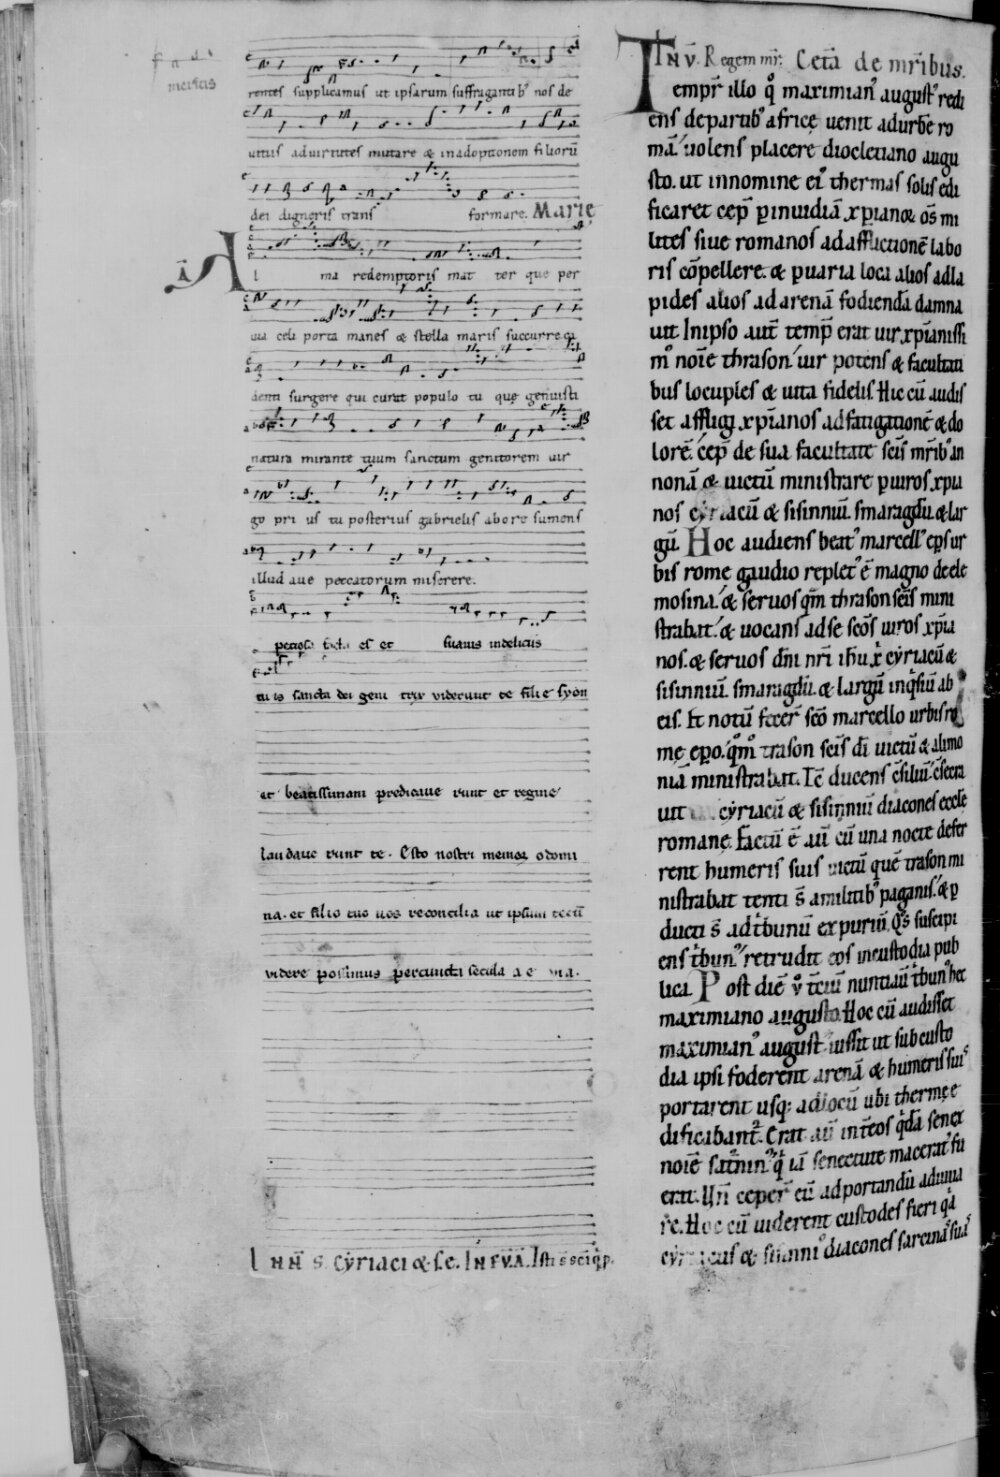 rentes supplicamus ut ipsarum suffragantibꝰ nos de
uitiis aduirtutes mutare & inadoptionem filiorū
dei digneris trans formare. Marię
ā Al ma redemptoris mat ter que per
uia celi porta manes & stella maris succurre ca
denti surgere qui curat populo tu quę genuisti
natura mirante tuum sanctum genitorem uir
go pri us tu posterius gabrielis abore sumens
illud aue peccatorum miserere.
es et suauis indeliciis
tu is sancta dei geni trix viderunt te filie syon
et beatissimam predicaue runt et regine
laudaue runt te. Esto nostri memor o domi
na. et filio tuo nos reconcilia ut ipsum tecū
videre possimus percuncti secula
Inn̄ s. cẏriaci & sc. In evā. Isti s̄
In v̄. Regem mr̄: Cet̄a de mr̄ibus.
Tempr̄ illo q̊ maximianꝰ augustꝰ redi
ens departibꝰ africę uenit adurbē ro
mā uolens placere diocletiano augu
sto. ut innomine eiꝰ thermas solis edi
ficaret cep̄ p̱inuidiā xp̄ianoꝝ os̄ mi
lites siue romanos adafflictionē labo
ris cōpellere. & p̱uaria loca alios adla
pides alios ad arenā fodiendā damna
uit Inipso aut̄ temp̄ erat uir xp̄ianissi
mꝰ noīe thrason uir potens & facultati
bus locuples & uita fidelis. Hic cū audis
set affligi xp̄ianos adfatigationē & do
lorē. cep̄ de sua facultate sc̄is mr̄ibꝰ an
nonā & uictū ministrare p̱uiros xp̄ia
nos cẏriacū & sisinniū. smaragdū. & lar
gū. Hoc audiens beatꝰ marcellꝰ ep̄s ur
bis rome gaudio repletꝰ ē magno deele
mosina. & seruos qm̄ thrason sc̄is mini
strabat. & uocans adse sc̄os uiros xp̄ia
nos. & seruos dn̄i nr̄i ih̄u x̄ cẏriacū &
sisinniū. smaragdū. & largū inq̇siuit ab
eis. Et notū fecer̄ sc̄o marcello urbis ro
mę ep̄o. qm̊ trason sc̄is dī uictū & alimo
niā ministrabat. Tc̄ ducens c̄siliū. c̄secra
uit cẏriacū & sisinniū diacones eccle
romanę. Factū ē aū cū una nocte defer
rent humeris suis uictū quē trason mi
nistrabat tenti s̄ amilitibꝰ paganis. & p̱
ducti s̄ adt̄bunū expuriū. Qs̄ suscipi
ens t̄bunꝰ retrudit eos incustodia pub
lica. Post diē v̊ t̄ciū nuntiauit t̄bunꝰ hec
maximiano augusto. Hoc cū audisset
maximianꝰ augustꝰ iussit ut subcusto
dia ipsi foderent arenā & humeris suis
portarent usq; adlocū ubi thermę e
dificabant̄. Erat aū int̄eos q̇dā senex
noīe sat̄ninꝰ q̇ iā senectute maceratꝰ fu
erat. Un̄ ceper̄ eū adportandū adiuua
re. Hoc cū uiderent custodes fieri qd̄
cẏriacus & sisinniꝰ diacones sarcinā suā